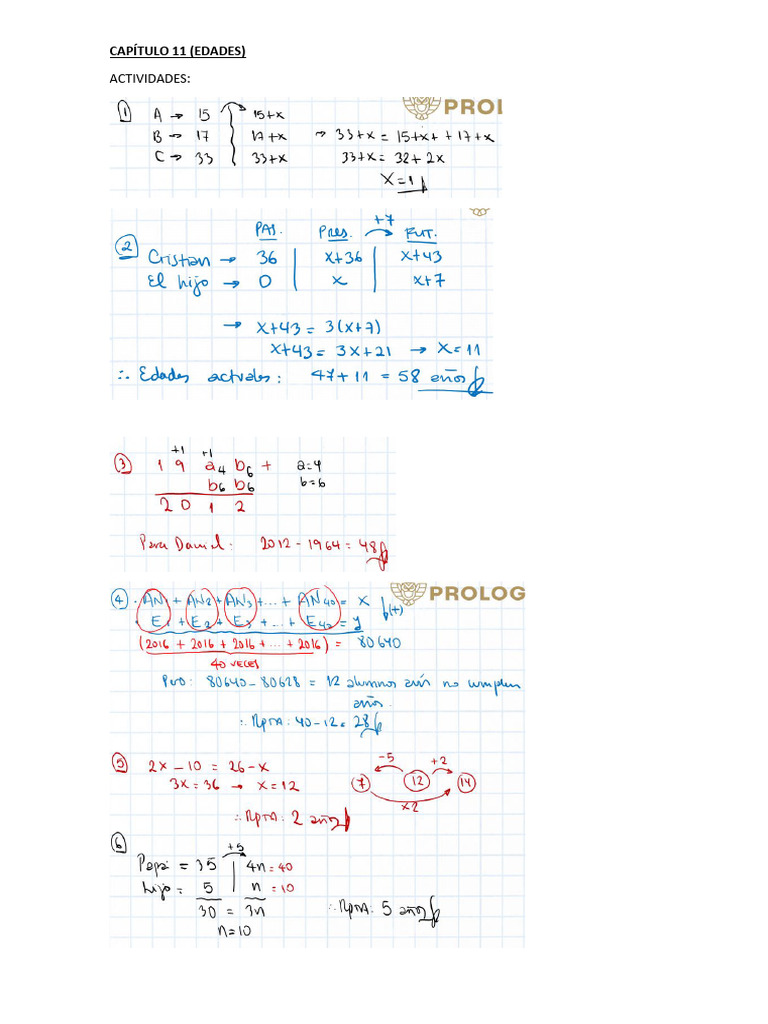 CAPÍTULO 11 (EDADES)
ACTIVIDADES:
PROL
1 A → 15 15+x
B → 17 17+x → 33+x = 15+x+ +17+x
C → 33 33+x 33+x = 32+2x
x=1
PAS. PRES. +7 FUT.
2 Cristian → 36 x+36 x+43
El hijo → 0 x x+7
→ x+43 = 3(x+7)
x+43 = 3x+21 → x=11
∴ Edades actuales: 47+11 = 58 años
+1 +1
3 1 9 a4 b6 + a=4
b6 b6 b=6
2 0 1 2
Para Daniel: 2012-1964 = 48
PROLOG
4 · AN1 + AN2 + AN3 + ... + AN40 = x
· E1 + E2 + E3 + ... + E40 = y (+)
(2016 + 2016 + 2016 + ... + 2016) = 80640
40 VECES
Pero: 80640-80628 = 12 alumnos aún no cumplen
años.
∴ Rpta: 40-12 = 28
5 2x-10 = 26-x -5 +2
3x=36 → x=12 7 12 14
x2
∴ Rpta: 2 años
6 +5
Papá = 35 4n=40
hijo = 5 n = 10
30 = 3n ∴ Rpta: 5 años
n=10